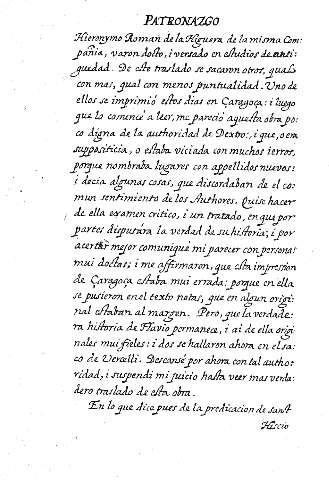 PATRONAZGO
Hieronymo Roman de la Higuera de la misma Com-
pañia, varon docto, i versado en estudios de anti-
guedad. De este traslado se sacaron otros, qual
con mas, qual con menos puntualidad. Uno de
ellos se imprimió estos dias en Çaragoça: i luego
que lo comencè a leer, me pareciò aquesta obra po-
co digna de la authoridad de Dextro:, i que, o era
supposititia, o estaba viciada con muchos ierros,
porque nombraba lugares con appellidos nuevos:
i decia algunas cosas, que discordaban de el co-
mun sentimiento de los Authores. Quise hacer
de ella examen critico, i un tratado, en que por
partes dispusiera la verdad de su historia; i por
acertar mejor comuniquè mi parecer con personas
mui doctas; i me affirmaron, que esta impression
de Çaragoça estaba mui errada; porque en ella
se pusieron en el texto notas, que en algun origi-
nal estaban al margen. Pero, que la verdade-
ra historia de Flavio permanece, i ai de ella origi-
nales mui fieles: i dos se hallaron ahora en el sa-
co de Vercelli. Descansè por ahora con tal autho-
ridad, i suspendi mi juicio hasta veer mas verda-
dero traslado de esta obra.
En lo que dice pues de la predicacion de sanct
Hiscio